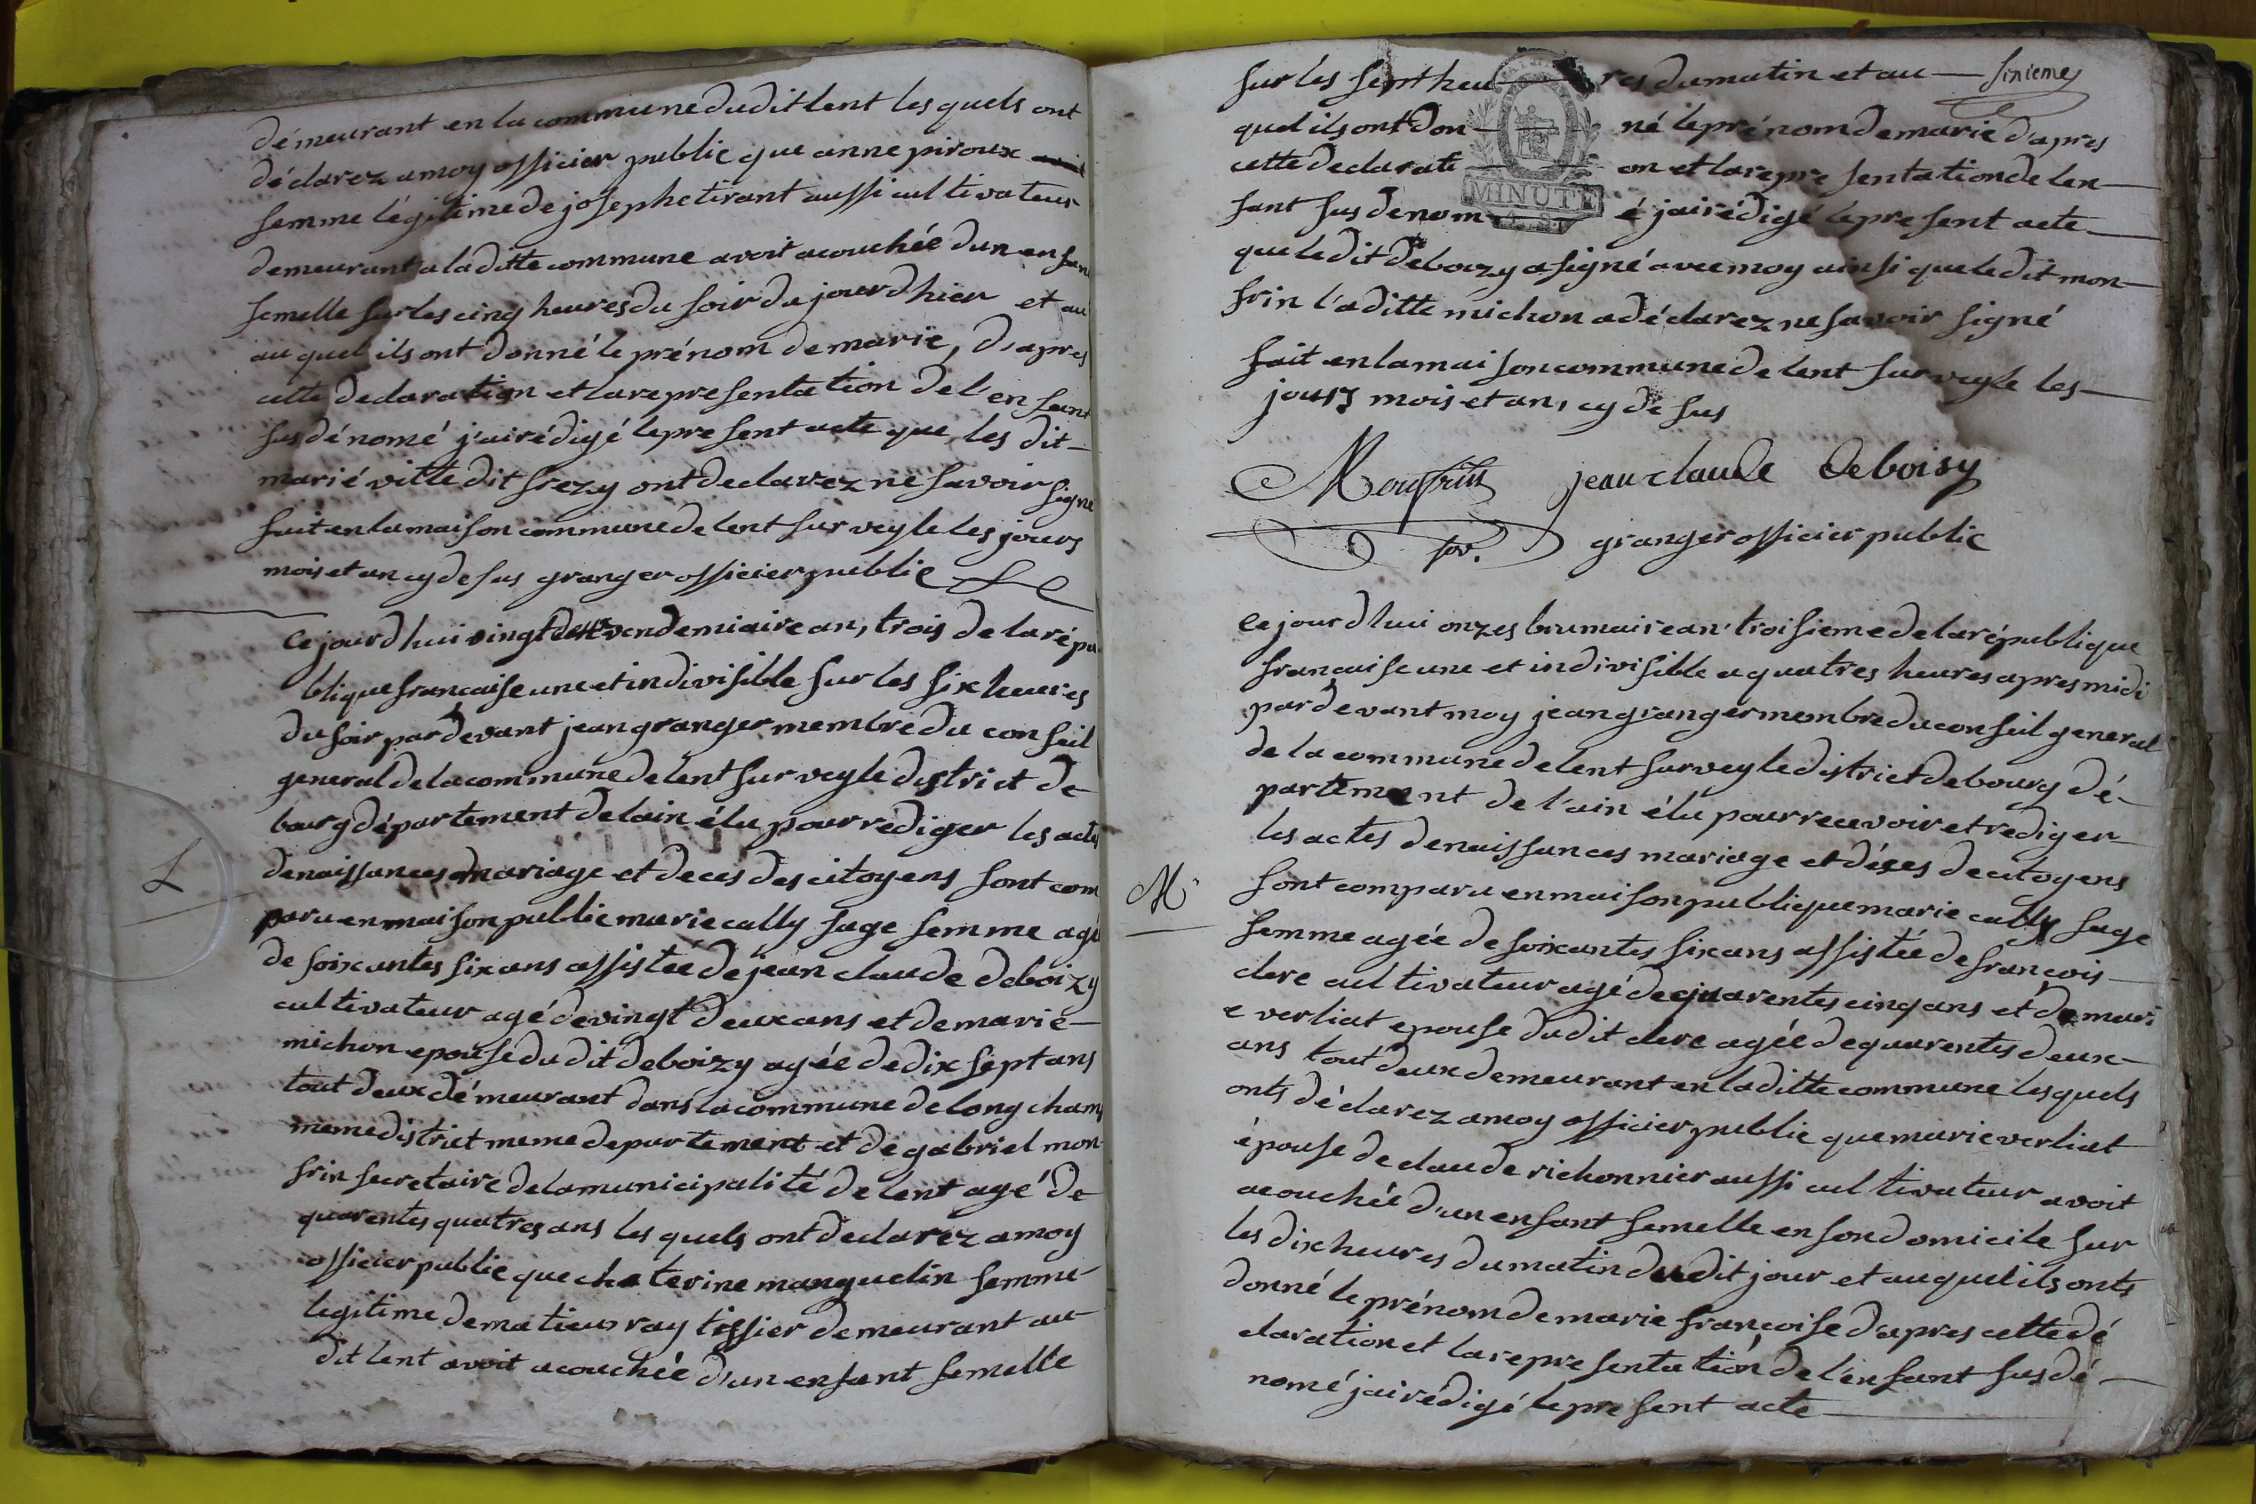 démeurant en la commune dudit lent les quels ont
déclarez a moy officier public que anne piroux
femme légitime de joseph hetirant aussi cultivateur
demeurant a la ditte commune avoit acouchée dun enfant
femelle sur les cinq heures du soir du jourdhier et au
au quel ils ont donné le prénom de marie, d'apres
cette declaration et la representation de l'enfant
sus dénomé j'ai rédigé le present acte que les dit
marié vitte dit frezy ont declarez ne savoir signé
fait en la maison commune de lent sur veyle les jours
mois et an cy desus granger officier public
Ce jourdhui vingt deux vendemiaire an, trois de la répu
blique francaise une et indivisible sur les six heures
du soir par devant jean granger membre du conseil
general de la commune de lent sur veyle district de
bourg département de lain élu pour rediger les actes
de naissances mariage et deces des citoyens sont com
L
paru en maison public marie cally sage femme agé
de soixantes six ans assistee de jean claude deboizy
cultivateur agé de vingt deux ans et de marie
michon epouse du dit deboizy agée de dix sept ans
tout deux démeurant dans la commune de longcham
meme district meme departement et de gabriel mon
frin secretaire de la municipalité de lent agé de
quarentes quatres ans les quels ont declarez a moy
officier public que chaterine manguelin femme
legitime de matieu ray tissier demeurant au
dit lent avoit acouchée d'un enfant femelle
sixieme
sur les sept heu res du matin et au
quel ils ont don né le prénom de marie d'apres
cette declarati on et la representation de len
MINUTE
fant sus denom é j'ai rédigé le present acte
que le dit deboizy a signé avec moy ainsi que le dit mon
frin l'aditte michon a déclarez ne savoir signé
fait en la maison commune de lent sur veyle les
jours mois et an, cy de sus
Monfrin jean claude deboisy
granger officier public
Ce jourdhui onzes brumaire an troisieme de la république
francaise une et indivisible a quatres heures apres midi
par devant moy jean granger membre du conseil general
de la commune de lent sur veyle district de bourg dé
partement de l'ain élu pour recevoir et rediger
les actes de naissances mariage et déces de citoyens
M
sont comparu en maison publique marie cally sage
femme agée de soixantes six ans assistée de francois
clere cultivateur agé de quarentes cinq ans et de mari
e verliat epouse du dit clere agée de quarentes deux
ans tout deux demeurant en la ditte commune lesquels
onts déclarez a moy officier public que marie verliat
épouse de claude richonnier aussi cultivateur avoit
acouchée d'un enfant femelle en son domicile sur
les dix heures du matin du dit jour et au quel ils onts
donné le prénom de marie francoise d'apres cette dé
claration et la representation de l'enfant sus dé
nomé j'ai rédigé le present acte